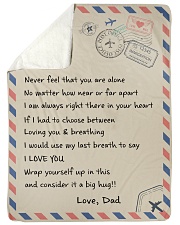 Never feel that you are alone
No matter how near or far apart
I am always right there in your heart
If I had to choose between
Loving you & breathing
I would use my last breath to say
I LOVE YOU
Wrap yourself up in this
and consider it a big hug!!
Love, Dad